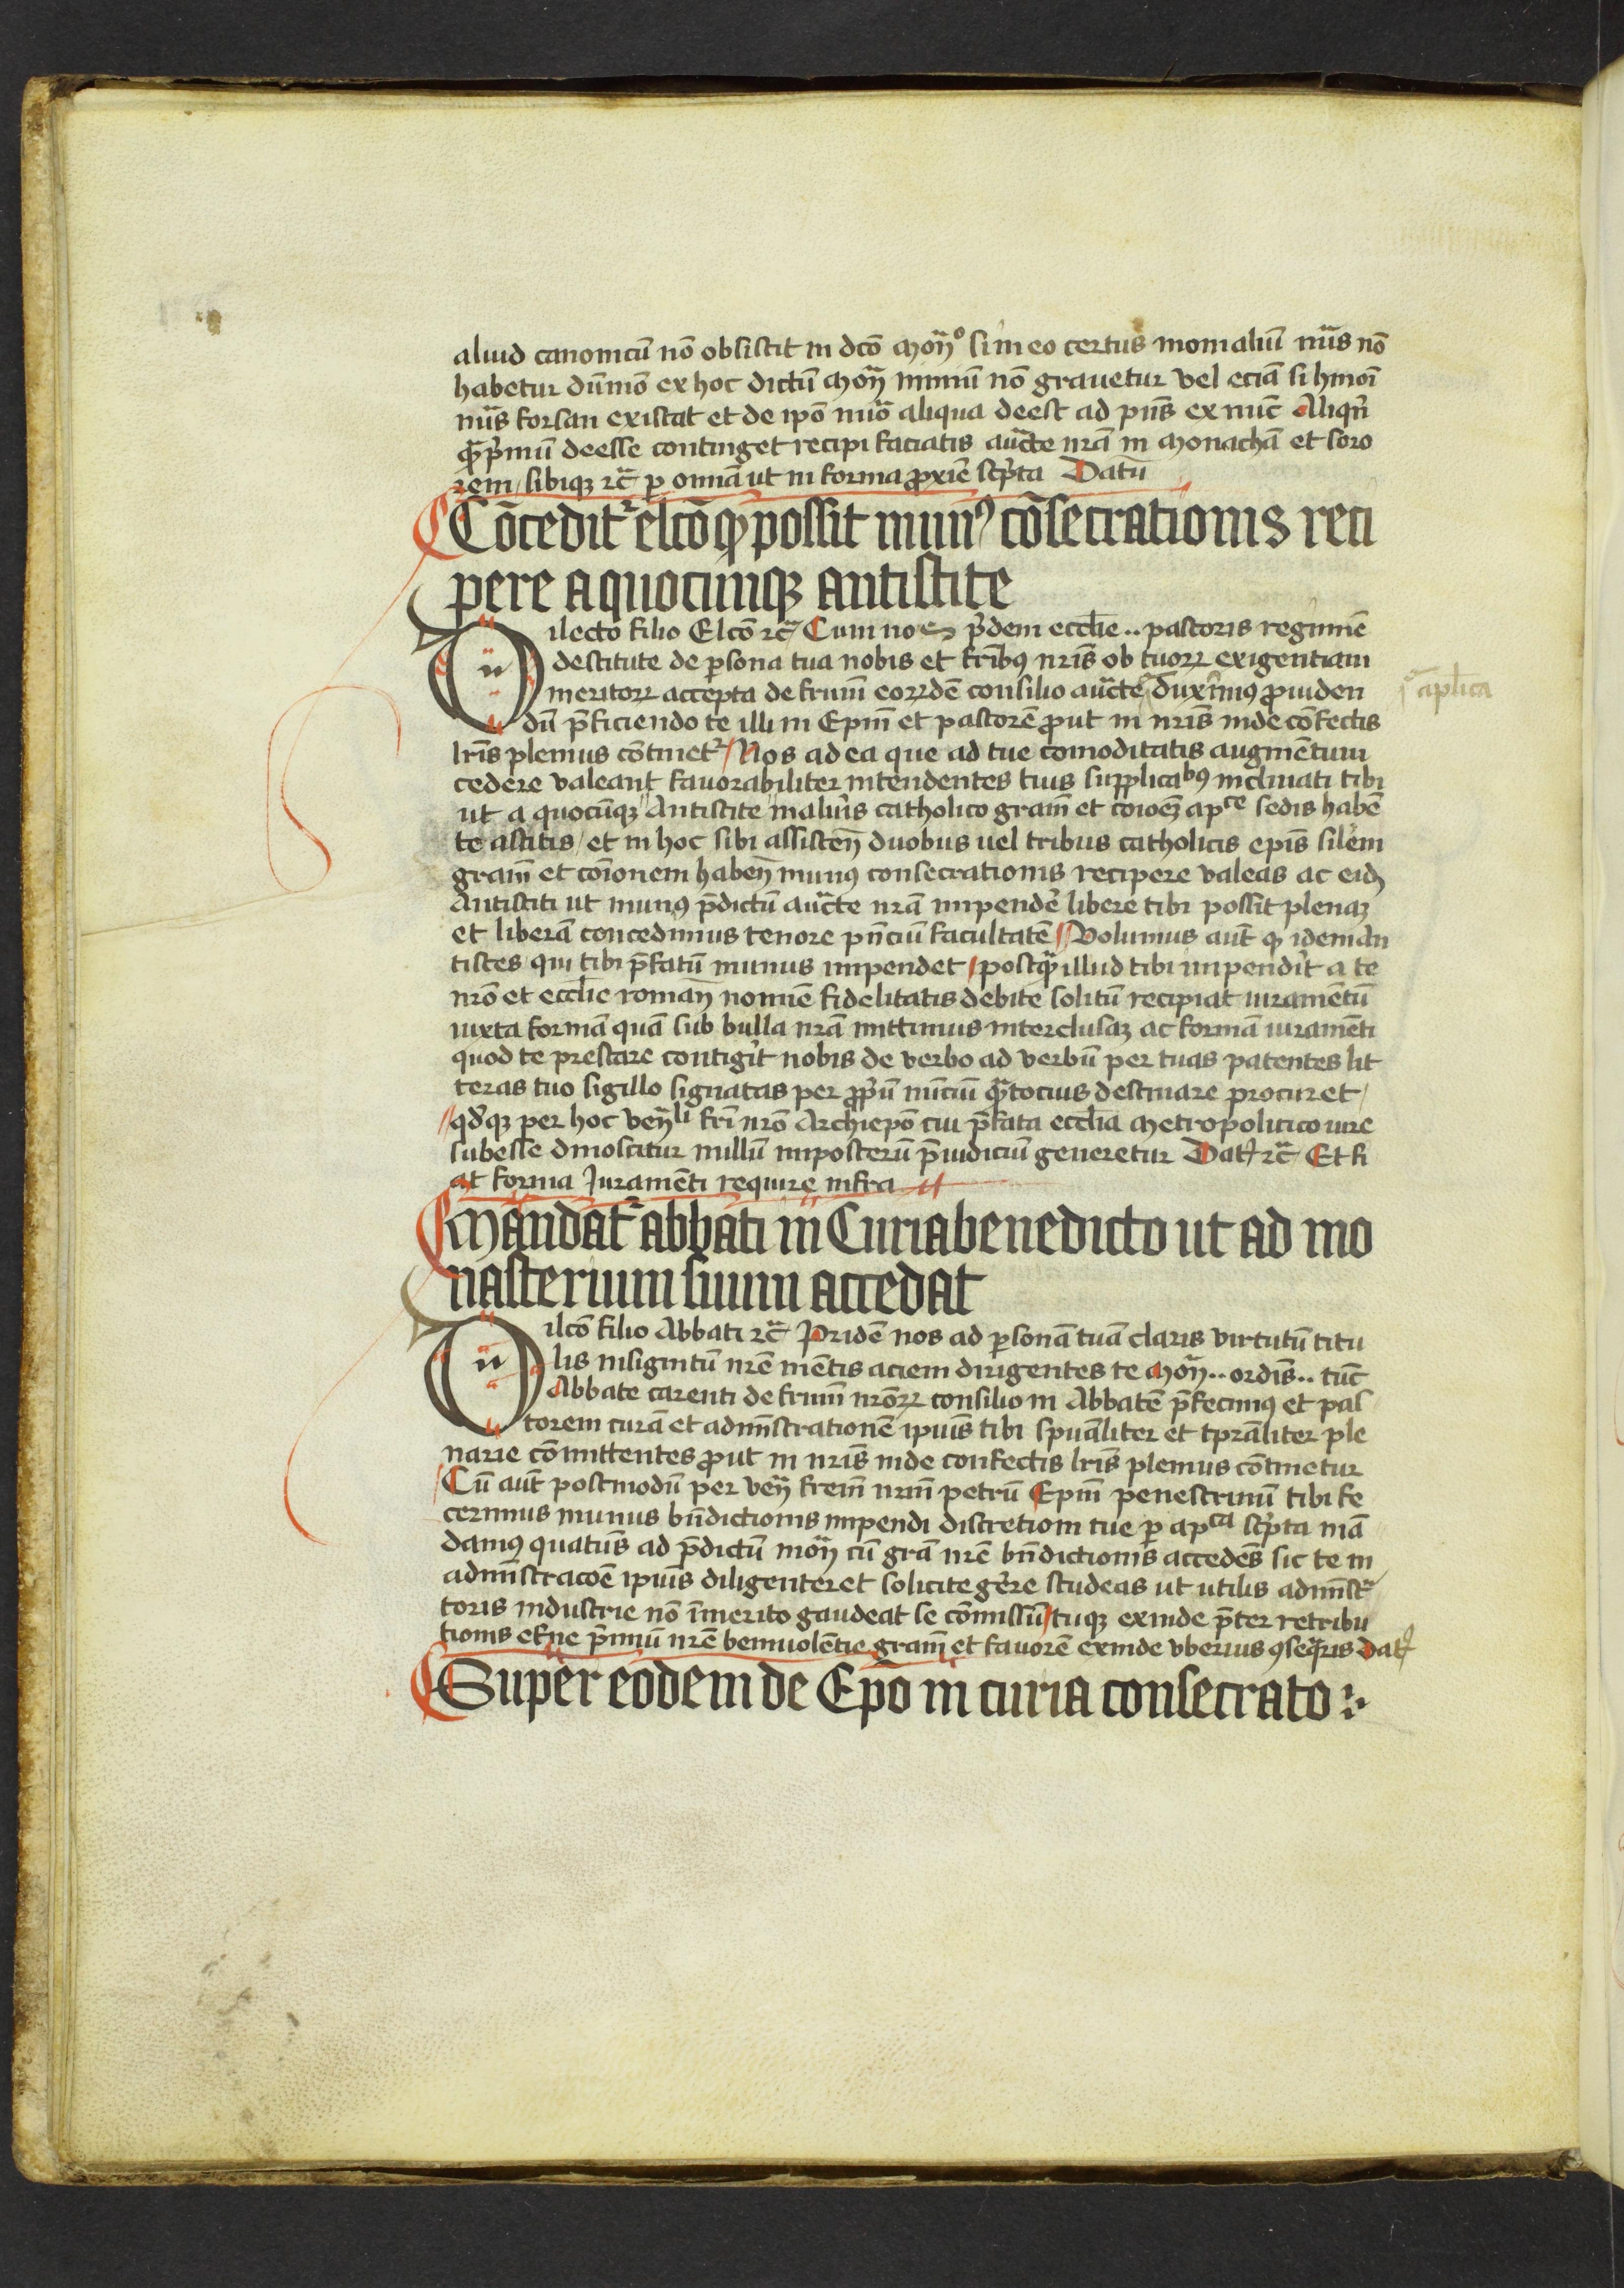 aliud canonicū nō obsistit in dc̄o Moñ⁰ si in eo certus monialiū nu͂s nō
habetur dūmō ex hoc dictū Moñ nimiū nō grauetur vel eciā si hmōi
nu͂s forsan existat et de ip̄o nu͂o aliqua deest ad pn̄s ex nūc Aliqñ
qᵃ̄pⁱmū deesse continget recipi faciatis auc̄te nr̄a in Monachā et soro
rem / sibiqꝫ ꝛc̄ ꝑ om̄ia ut in forma ꝓxīe scⁱpta Datū
Cōcedit᷑ elc̄o qꝙ possit mun⁹ cōsecrationis reci
pere a quocumqꝫ antistite
Dilecto filio Elc̄o ꝛc̄ Cum nos pⁱdem eccl̄ie .. pastoris regimīe
destitute de ꝑsona tua nobis et fr̄ibꝰ nr̄is ob tuoꝝ exigentiam
meritoꝝ accepta de frūm eoꝝdē consilio auc̄te duxīmꝰ ꝓuiden
aplīca
dū p̄ficiendo te illi in Ep̄m et pastorē ꝓut in nr̄is inde cōfectis
lr̄is plenius cōtinet᷑ / Nos ad ea que ad tue comoditatis augmētum
cedere valeant fauorabiliter intendentes tuis supplicaᵇꝰ inclinati tibi
ut a quocūqꝫ Antistite malūis catholico gram̄ et cōioeꝫ apᶜᵉ sedis habē
te ascitis / et in hoc sibi assisteñ duobus uel tribus catholicis ep̄is silēm
gram̄ et cōionem habeñ munꝰ consecrationis recipere valeas ac eidꝫ
Antistiti ut munꝰ p̄dictū auc̄te nr̄a impendē libere tibi possit plenaꝫ
et liberā concedimus tenore pn̄ciū facultatē / Volumus aut̄ ꝙ idem An
tistes qui tibi p̄fatū munus impendet / postqᵃ̄ illud tibi impendīt a te
nr̄o et eccl̄ie romañ nomīe fidelitatis debite solitū recipiat iuramētū
iuxta formā quā sub bulla nr̄a mittimus interclusaꝫ ac formā iuramēti
quod te prestare contigīt nobis de verbo ad verbū per tuas patentes lit
teras tuo sigillo signatas per ꝓpⁱū nūciū qᵃ̄tocius destinare procuret /
qd̕qꝫ per hoc veñˡⁱ fr̄i nr̄o Archiep̄o cui p̄fata eccl̄ia Metropolitico iure
subesse dinoscitur nullū imposterū p̄iudiciū generetur Dat̄ ꝛc̄ Et fi
at forma Iuramēti require infra
Mandat᷑ abbati in Curia benedicto ut ad mo
nasterium suum accedat
Dilc̄o filio Abbati ꝛc̄ Pridē nos ad ꝑsonā tuā claris virtutū titu
lis insignitū nr̄e mētis aciem dirigentes te Moñ .. ordīs .. tūc
Abbate carenti de frūm nr̄oꝝ consilio in Abbatē p̄fecimꝰ et pas
torem curā et admīstrationē ipīus tibi spūaliter et tp̄raliter ple
narie cōmittentes ꝓut in nr̄is inde confectis lr̄is plenius cōtinetur
Cū aut̄ postmodū per veñ frem̄ nrm̄ petrū Ep̄m penestrinū tibi fe
cerimus munus bn̄dictionis impendi discretioni tue ꝑ apᶜᵃ scⁱpta mā
damꝰ quatūs ad p̄dictū moñ cū gr̄a nr̄e bn̄dictionis accedēs sic te in
admīstracōe ipīus diligenter et solicite gēre studeas ut utilis admīstᵃ
toris industrie nō īmerito gaudeat se cōmissū / tuqꝫ exinde p̄ter retribu
tionis eĩne p̄miū nr̄e beniuolētie gram̄ et fauorē exinde vberius ꝯseqᵃris Dat̄
Super eodem de Ep̄o in curia consecrato